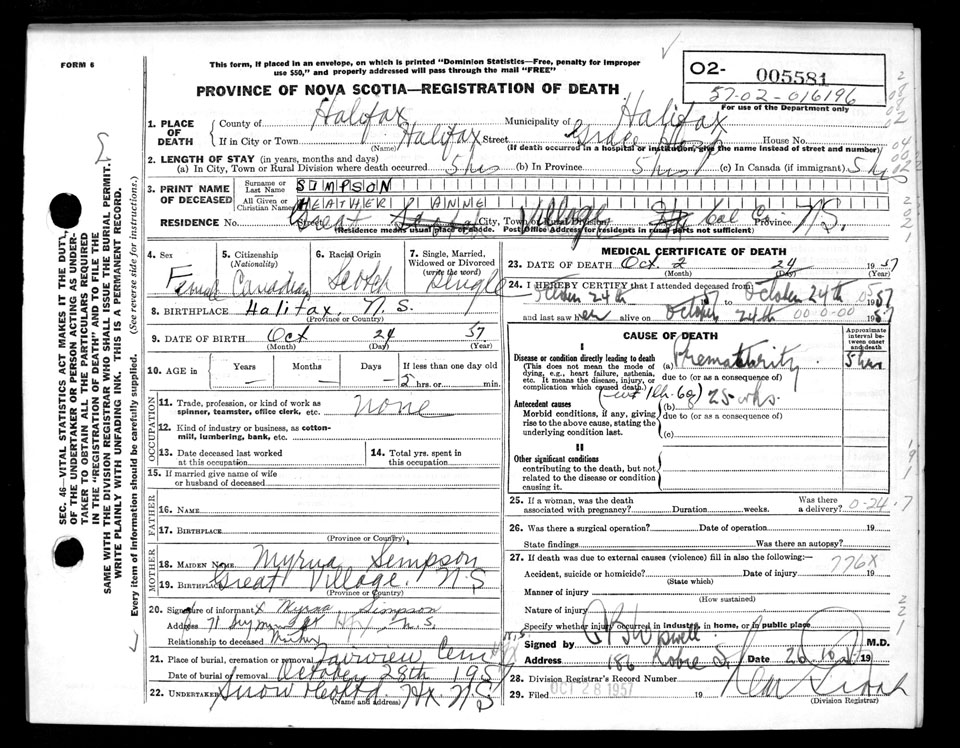 FORM 6
This form, if placed in an envelope, on which is printed "Dominion Statistics—Free, penalty for improper
use $50," and properly addressed will pass through the mail "FREE"
PROVINCE OF NOVA SCOTIA—REGISTRATION OF DEATH
O2- 005581
57-02-016196
For use of the Department only
1. PLACE OF DEATH
County of Halifax Municipality of Halifax
If in City or Town Halifax Street Grace Hosp House No.
(Name) (If death occurred in a hospital or institution, give the name instead of street and number)
2. LENGTH OF STAY (in years, months and days)
(a) In City, Town or Rural Division where death occurred 5 hrs (b) In Province 5 hrs (c) In Canada (if immigrant) 5 hrs
3. PRINT NAME OF DECEASED
Surname or Last Name SIMPSON
All Given or Christian Names HEATHER ANNE
RESIDENCE No. Street City, Town or Rural Division Great Village Col Co. Province N.S.
(Residence means usual place of abode. Post Office Address for residents in rural parts not sufficient)
4. Sex Female
5. Citizenship (Nationality) Canadian
6. Racial Origin Scotch
7. Single, Married, Widowed or Divorced (write the word) Single
8. BIRTHPLACE Halifax, N.S.
(Province or Country)
9. DATE OF BIRTH Oct 24 1957
(Month) (Day) (Year)
10. AGE IN Years — Months — Days — If less than one day old 5 hrs. or min.
OCCUPATION
11. Trade, profession, or kind of work as spinner, teamster, office clerk, etc. none
12. Kind of industry or business, as cotton-mill, lumbering, bank, etc.
13. Date deceased last worked at this occupation
14. Total yrs. spent in this occupation
15. If married give name of wife or husband of deceased
FATHER
16. NAME
17. BIRTHPLACE
(Province or Country)
MOTHER
18. MAIDEN NAME Myrna Simpson
19. BIRTHPLACE Great Village, N.S
(Province or Country)
20. Signature of informant X Myrna Simpson
Address 71 Seymour St Hfx, N.S.
Relationship to deceased Mother
21. Place of burial, cremation or removal Fairview Cem Hfx N.S.
Date of burial or removal October 28th 1957
22. UNDERTAKER Snow & Co Ltd. Hx. N.S
(Name and address)
MEDICAL CERTIFICATE OF DEATH
23. DATE OF DEATH Oct. 24 1957
(Month) (Day) (Year)
24. I HEREBY CERTIFY that I attended deceased from
October 24th 57 to October 24th 1957
and last saw her alive on October 24th 1957
CAUSE OF DEATH
Approximate interval between onset and death
I
Disease or condition directly leading to death (a) Prematurity 5 hrs
(This does not mean the mode of dying, e.g., heart failure, asthenia, etc. It means the disease, injury, or complication which caused death.)
due to (or as a consequence of)
(wt 1 lb. 6oz) 25 wks.
Antecedent causes (b)
Morbid conditions, if any, giving rise to the above cause, stating the underlying condition last.
due to (or as a consequence of)
(c)
II
Other significant conditions
contributing to the death, but not related to the disease or condition causing it.
25. If a woman, was the death associated with pregnancy? Duration weeks. Was there a delivery?
26. Was there a surgical operation? Date of operation 19
State findings Was there an autopsy?
27. If death was due to external causes (violence) fill in also the following:—
776X
Accident, suicide or homicide? Date of injury 19
(State which)
Manner of injury
(How sustained)
Nature of injury
Specify whether injury occurred in industry, in home, or in public place
Signed by M.D.
Address 186 Robie St Date 26 19
28. Division Registrar's Record Number
29. Filed OCT 28 1957 19
(Division Registrar)
SEC. 46—VITAL STATISTICS ACT MAKES IT THE DUTY OF THE UNDERTAKER OR PERSON ACTING AS UNDERTAKER TO OBTAIN ALL THE PARTICULARS REQUIRED IN THE "REGISTRATION OF DEATH" AND TO FILE THE SAME WITH THE DIVISION REGISTRAR WHO SHALL ISSUE THE BURIAL PERMIT.
WRITE PLAINLY WITH UNFADING INK. THIS IS A PERMANENT RECORD.
Every item of information should be carefully supplied. (See reverse side for instructions.)